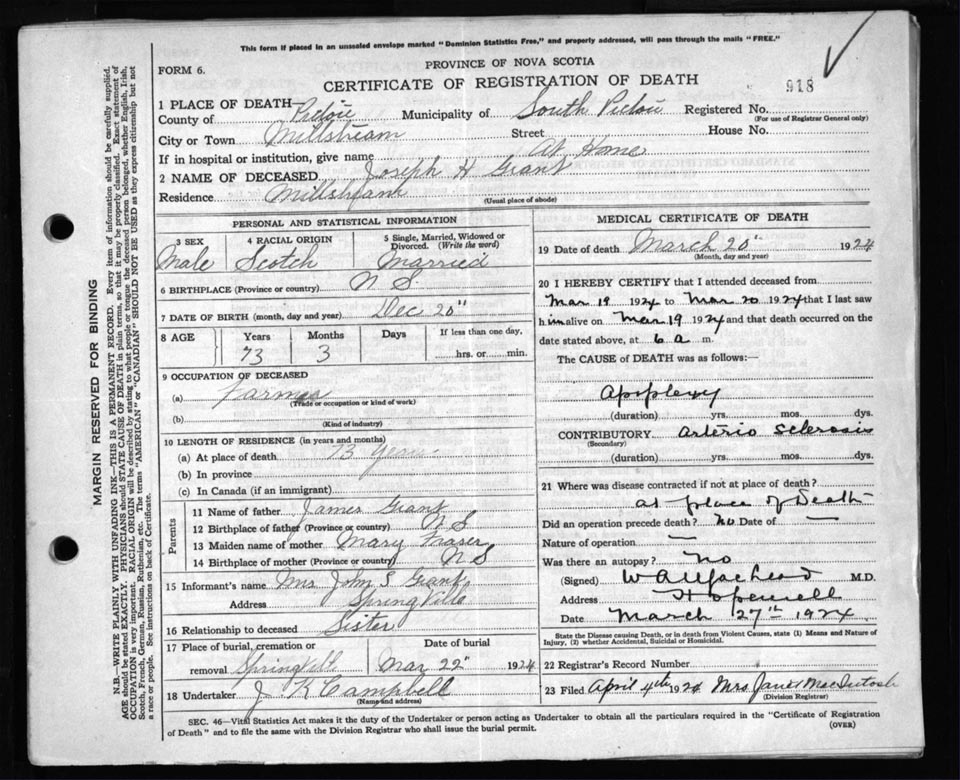 This form if placed in an unsealed envelope marked "Dominion Statistics Free," and properly addressed, will pass through the mails "FREE."
PROVINCE OF NOVA SCOTIA
FORM 6.
CERTIFICATE OF REGISTRATION OF DEATH
918
1 PLACE OF DEATH—
County of Pictou Municipality of South Pictou Registered No.
(For use of Registrar General only)
City or Town Millstream Street House No.
If in hospital or institution, give name At Home
2 NAME OF DECEASED Joseph H Grant
Residence Millstream
(Usual place of abode)
PERSONAL AND STATISTICAL INFORMATION
3 SEX 4 RACIAL ORIGIN 5 Single, Married, Widowed or Divorced. (Write the word)
Male Scotch Married
6 BIRTHPLACE (Province or country) N S
7 DATE OF BIRTH (month, day and year) Dec 20"
8 AGE Years Months Days If less than one day,
73 3 hrs. or min.
9 OCCUPATION OF DECEASED
(a) Farmer
(Trade or occupation or kind of work)
(b)
(Kind of industry)
10 LENGTH OF RESIDENCE (in years and months)
(a) At place of death 73 Years
(b) In province
(c) In Canada (if an immigrant)
Parents
11 Name of father James Grant
12 Birthplace of father (Province or country) N S
13 Maiden name of mother Mary Fraser
14 Birthplace of mother (Province or country) N S
15 Informant's name Mrs John S Grant
Address SpringVille
16 Relationship to deceased Sister
17 Place of burial, cremation or Date of burial
removal SpringVill Mar 22" 1924
18 Undertaker J K Campbell
(Name and address)
MEDICAL CERTIFICATE OF DEATH
19 Date of death March 20" 1924
(Month, day and year)
20 I HEREBY CERTIFY that I attended deceased from
Mar 19 1924 to Mar 20 1924 that I last saw
him alive on Mar 19 1924 and that death occurred on the
date stated above, at 6 a m.
The CAUSE of DEATH was as follows:—
Apoplexy
(duration) yrs. mos. dys.
CONTRIBUTORY arterio sclerosis
(Secondary)
(duration) yrs. mos. dys.
21 Where was disease contracted if not at place of death?
at place of Death
Did an operation precede death? No Date of —
Nature of operation —
Was there an autopsy? No
(Signed) M.D.
Address Hopewell
Date March 27th 1924
State the Disease causing Death, or in death from Violent Causes, state (1) Means and Nature of
Injury, (2) whether Accidental, Suicidal or Homicidal.
22 Registrar's Record Number
23 Filed April 4th 1924 Mrs Janet MacIntosh
(Division Registrar)
SEC. 46—Vital Statistics Act makes it the duty of the Undertaker or person acting as Undertaker to obtain all the particulars required in the "Certificate of Registration
of Death" and to file the same with the Division Registrar who shall issue the burial permit.
(OVER)
MARGIN RESERVED FOR BINDING
N.B.—WRITE PLAINLY WITH UNFADING INK—THIS IS A PERMANENT RECORD. Every item of information should be carefully supplied.
AGE should be stated EXACTLY. PHYSICIANS should STATE CAUSE OF DEATH in plain terms, so that it may be properly classified. Exact statement of
OCCUPATION is very important. RACIAL ORIGIN will be described by stating to what people or tongue the deceased person belonged, whether English, Irish,
Scotch, French, German, Russian, Ruthenian, etc. The terms "AMERICAN" or "CANADIAN" SHOULD NOT BE USED as they express citizenship but not
a race or people. See instructions on back of Certificate.